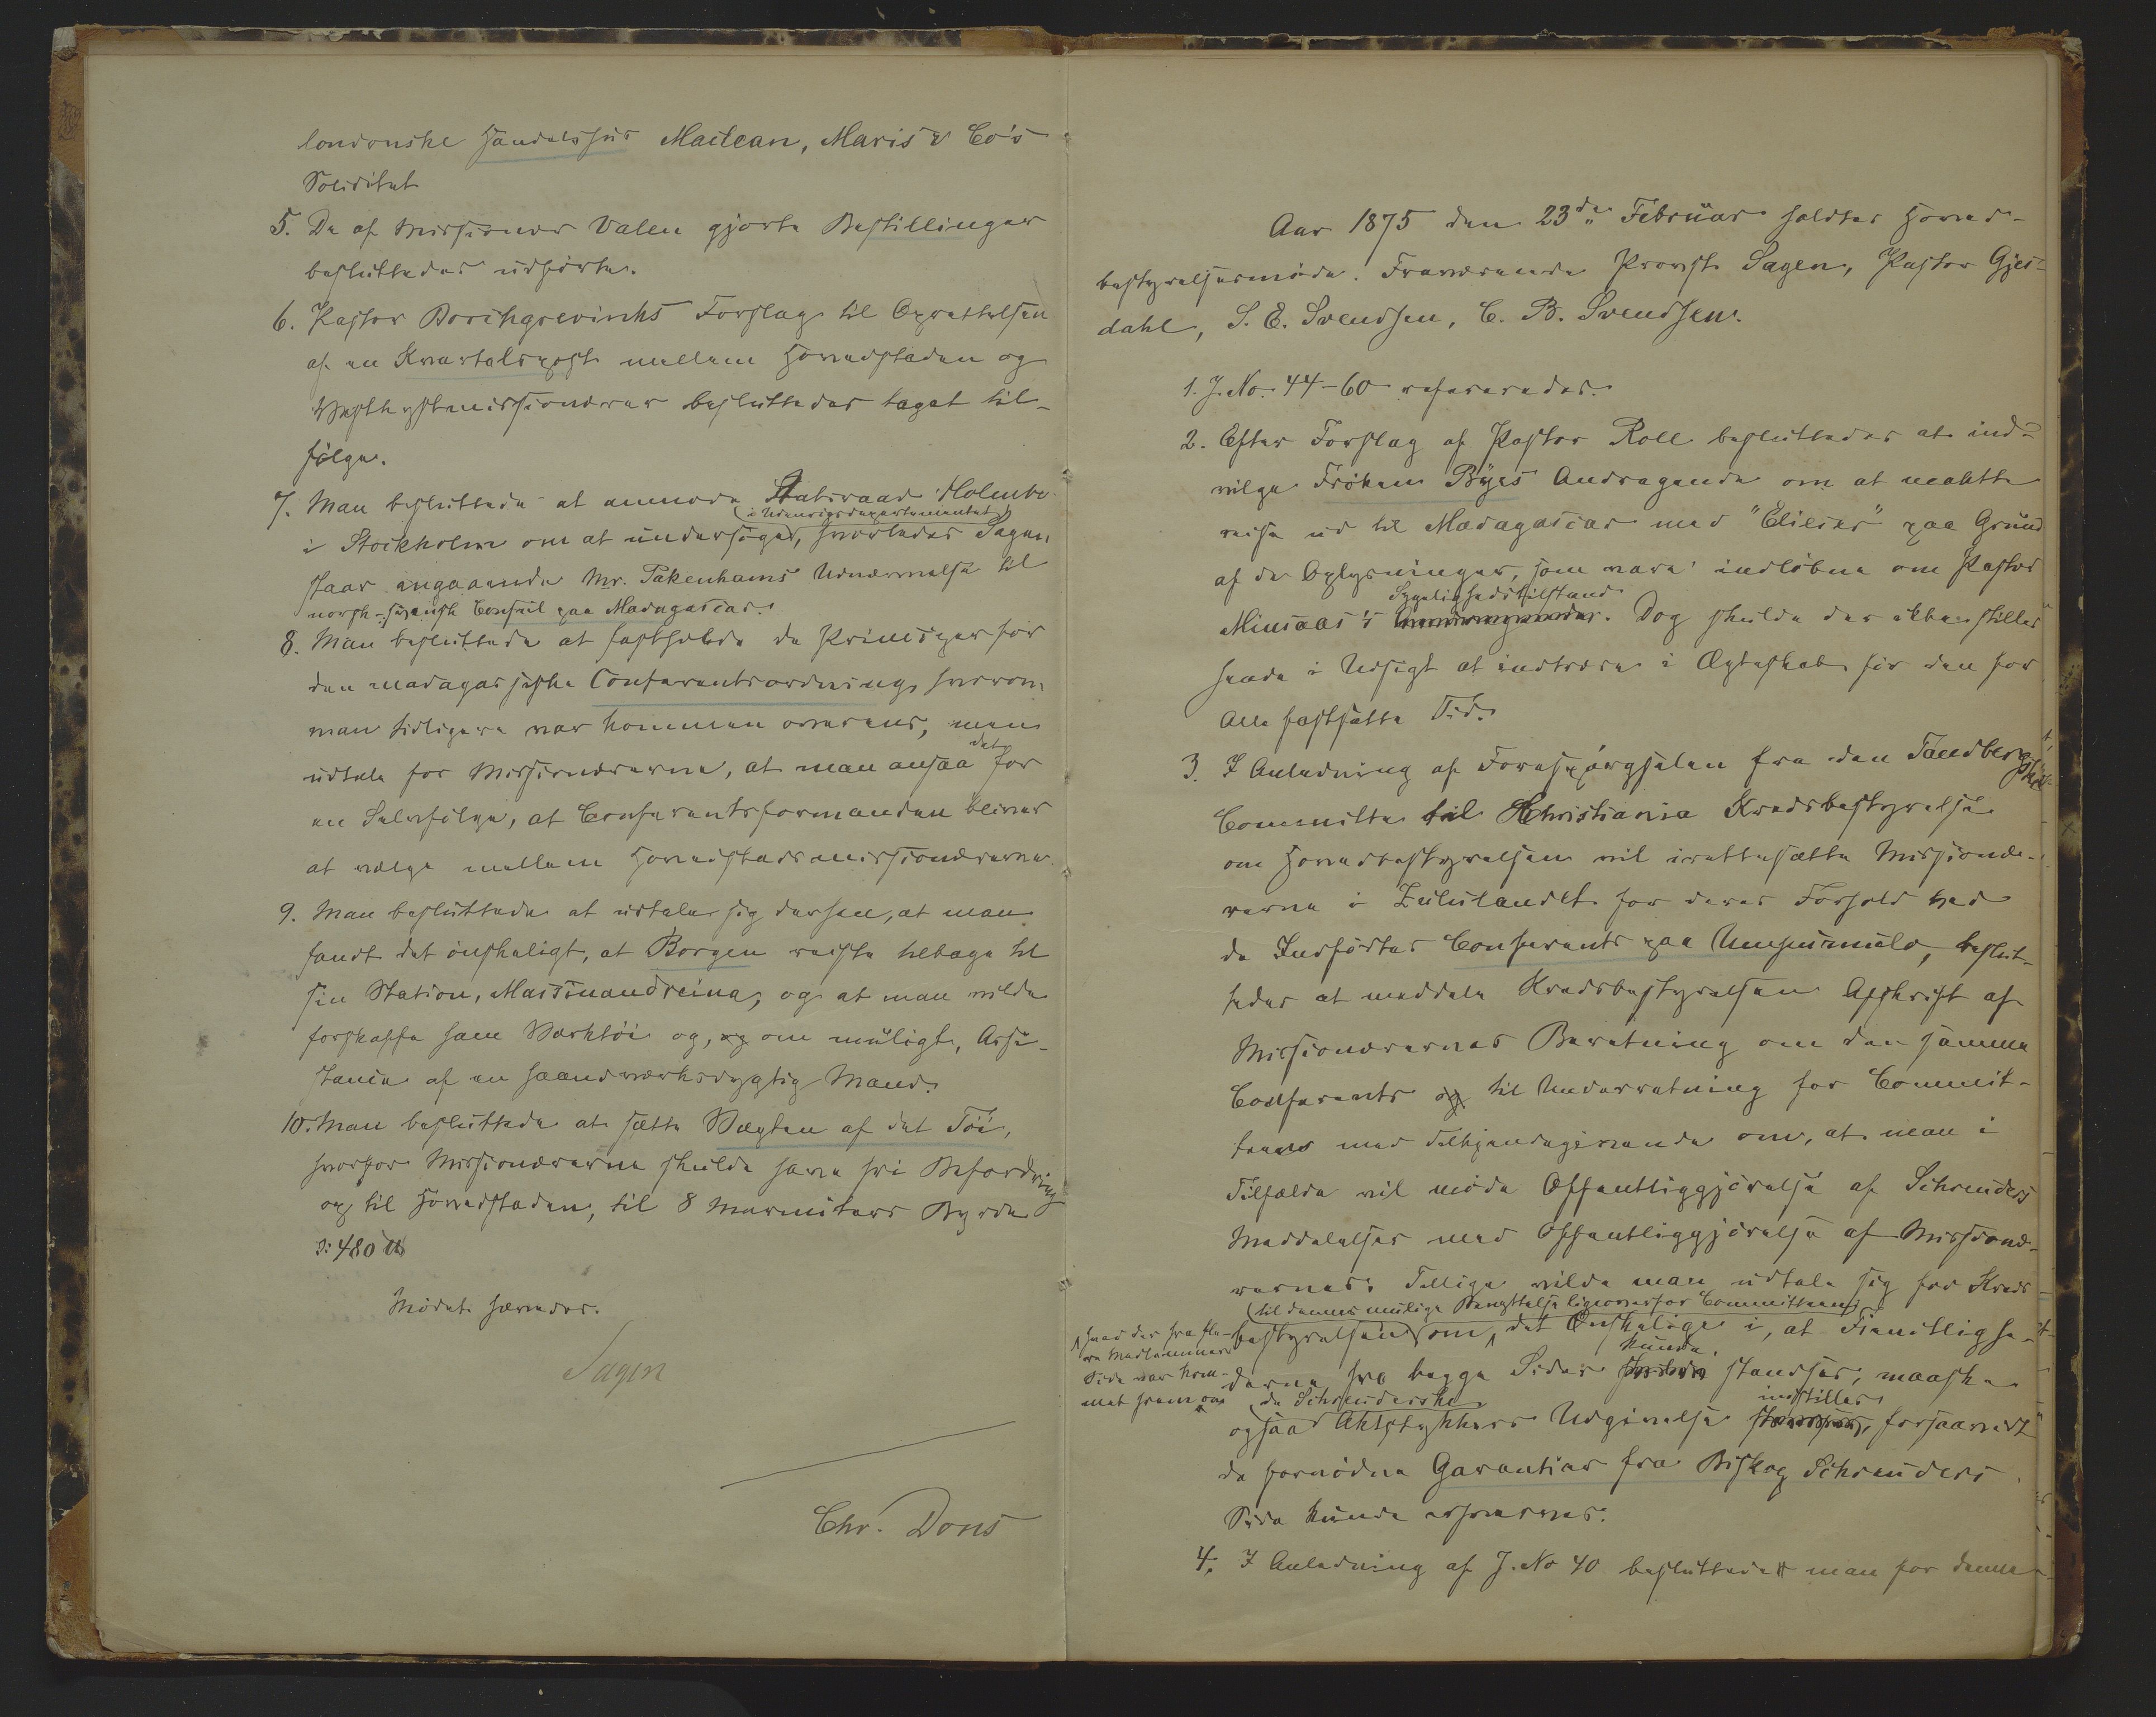 londonske Handelshus Maclean, Maris & Co's
Soliditet
5. De af Missionær Valen gjorte Bestillinger
besluttedes udførte.
6. Pastor Borchgrevinks Forslag til Oprettelsen
af en Kvartalspost mellem Hovedstaden og
Vestkystmissionærer besluttedes taget til-
følge.
7. Man besluttede at anmode Statsraad Holmbo
(i Udenrigsdepartementet)
i Stockholm om at undersøge, hvorledes Sagen
staar angaaende Mr. Pakenhams Udnævnelse til
norsk-svensk Consul paa Madagascar.
8. Man besluttede at fastholde de Principer for
den madagassiske Conferentsordning, hvorom
man tidligere var kommen overens, men
udtale for Missionærerne, at man ansaa det for
en Selvfølge, at Conferentsformanden bliver
at vælge mellem Hovedstadsmissionærerne.
9. Man besluttede at udtale sig derhen, at man
fandt det ønskeligt, at Borgen reiste tilbage til
sin Station, Masinandreina, og at man vilde
forskaffe ham Værktøi og, og om muligt, Assi-
stance af en haandværksdygtig Mand.
10. Man besluttede at sætte Vægten af det Tøi,
hvorfor Missionærerne skulde have fri Befordring
op til Hovedstaden, til 8 Marmiters Byrde
ɔ: 480 ℔
Mødet hævedes.
Sagen
Chr. Dons
Aar 1875 den 23de Februar holdtes Hoved-
bestyrelsesmøde. Fraværende Provst Sagen, Pastor Gjes-
dahl, S. E. Svendsen, C. B. Svendsen.
1. J. No. 44-60 refereredes.
2. Efter Forslag af Pastor Roll besluttedes at ind-
vilge Frøken Byes Andragende om at maatte
reise ud til Madagascar med "Elieser" paa Grund
af de Oplysninger, som vare indløbne om Pastor
Sygelighedstilstand
Minsaas's. Dog skulde der ikke stilles
hende i Udsigt at indtræde i Ægteskab før den for
Alle fastsatte Tid.
3. I Anledning af Forespørgselen fra den Tandbergske
Committe til Christiania Kredsbestyrelse
om Hovedbestyrelsen vil irettesætte Missionæ-
rerne i Zululandet for deres Forhold ved
de Indførtes Conferents paa Umpumulo, beslut-
tedes at meddele Kredsbestyrelsen Afskrift af
Missionærernes Beretning om den samme
Conferents og til Underretning for Commit-
teen med Tilkjendegivende om, at man i
Tilfælde vil møde Offentliggjørelse af Schreuders
Meddelelser med Offentliggjørelse af Missionæ-
rernes. Tillige vilde man udtale sig for Kreds-
(til dennes mulige Benyttelse ligeoverfor Committeen)
bestyrelsen om, det Ønskelige i, at Fiendtlighe-
hvad der fra fle-
re Medlemmers
Side var kom-
met frem om
kunde
derne fra begge Sider standses, maaske
de Schreuderske
indstilles
ogsaa Aktstykkers Udgivelse, forsaavidt
de fornødne Garantier fra Biskop Schreuders
Side kunde erhverves.
4. I Anledning af J. No 40 besluttede man for denne